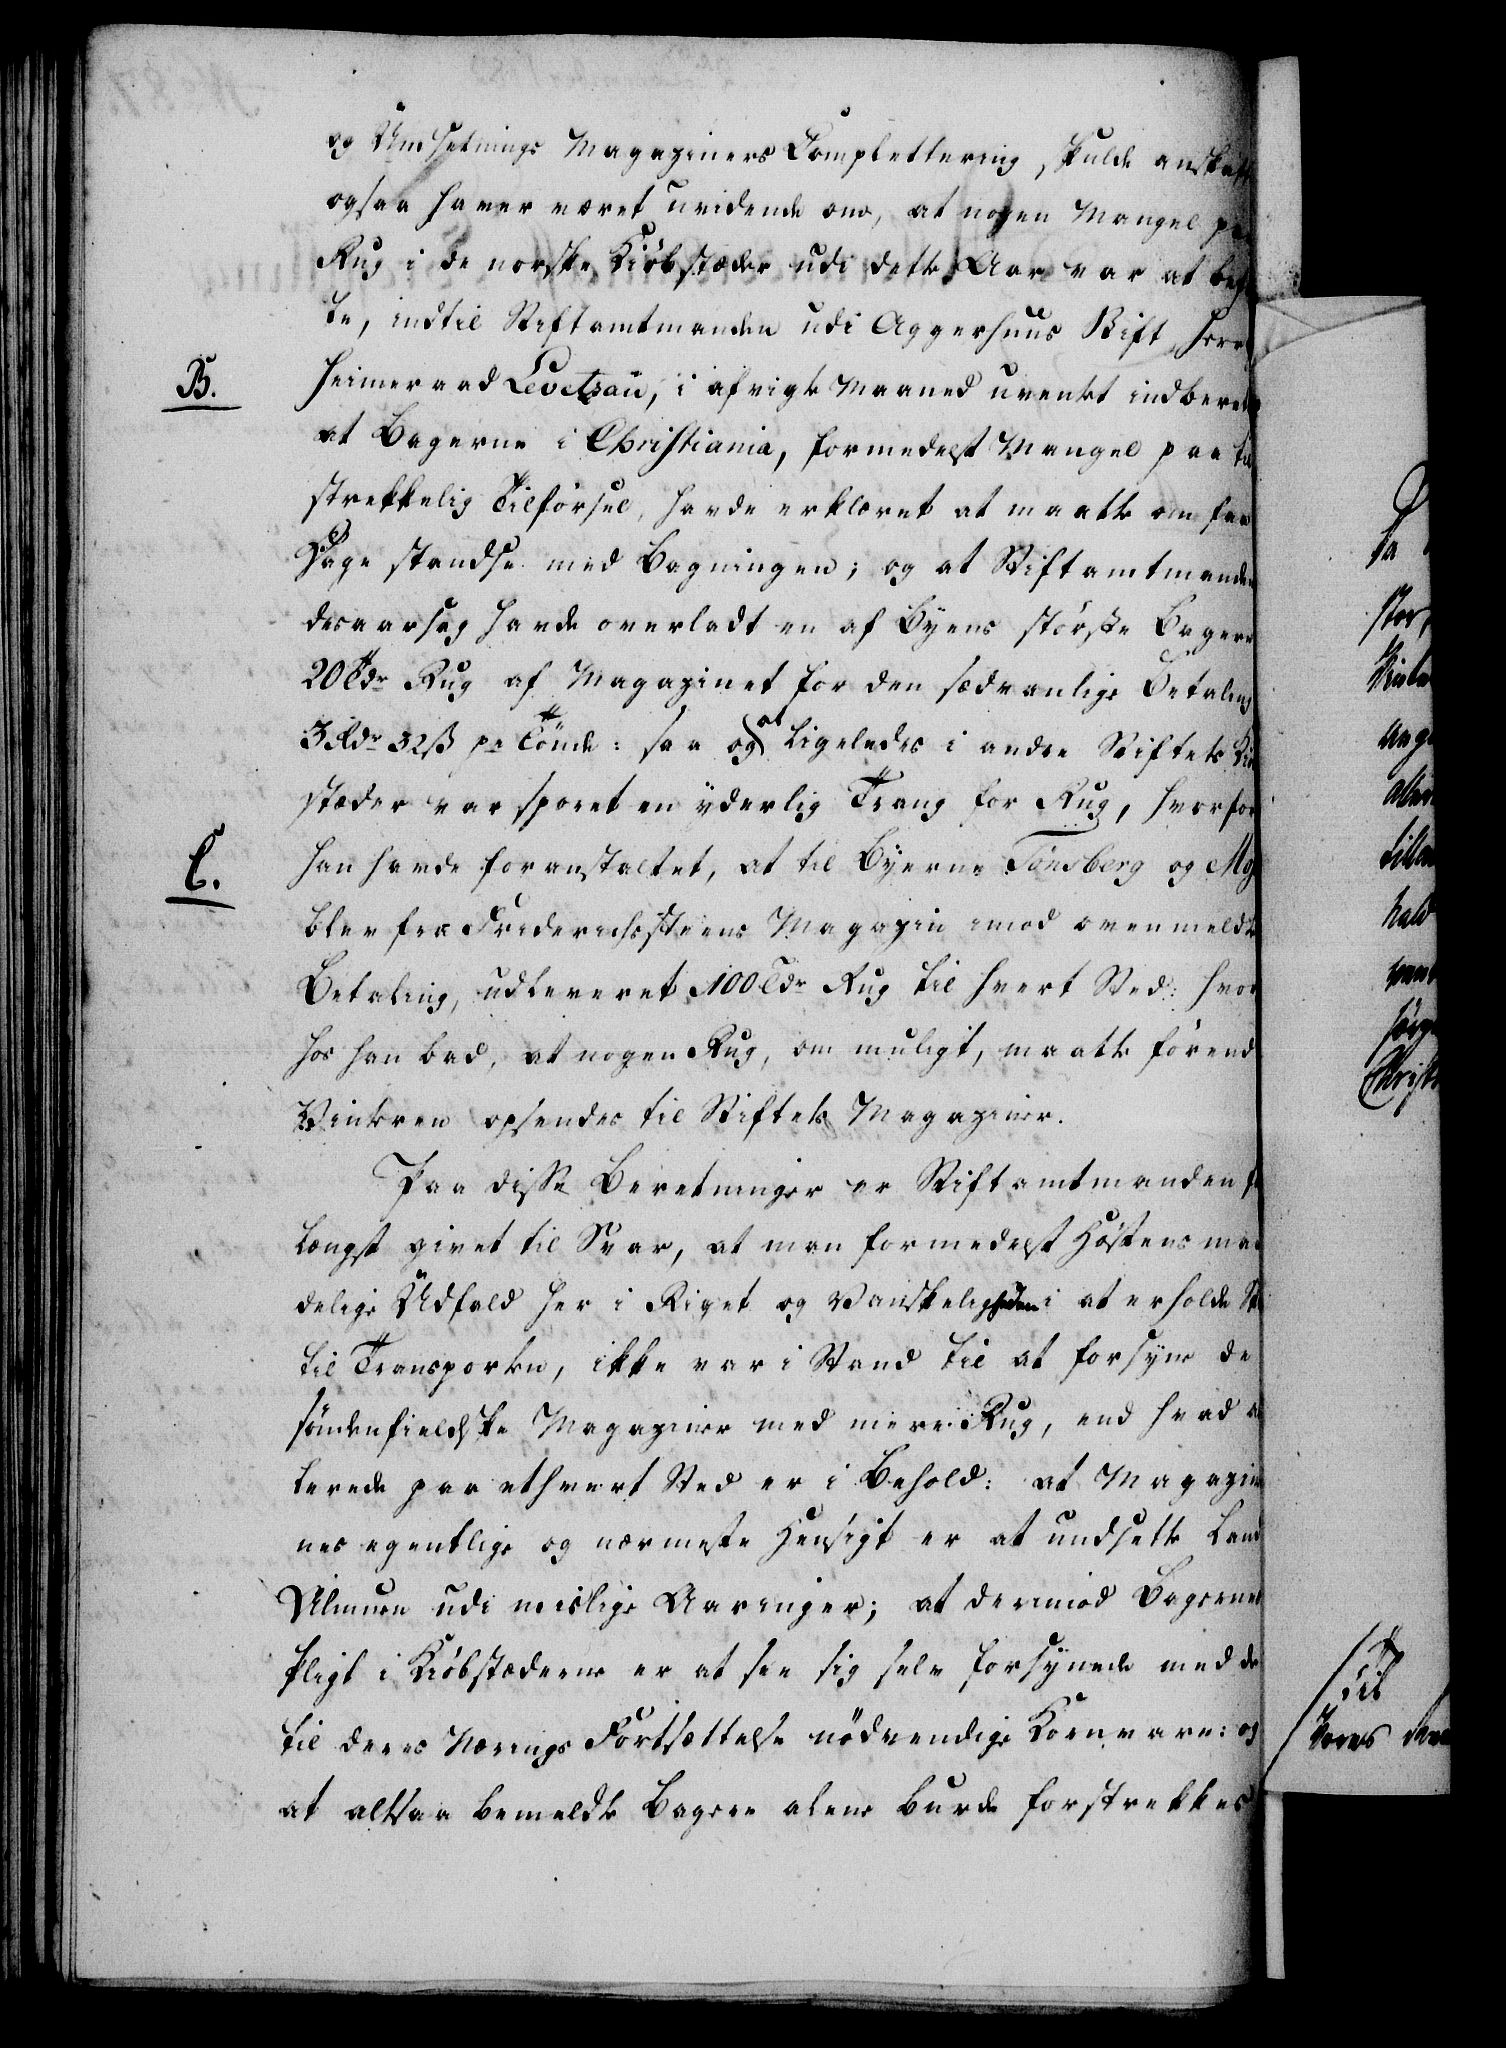 og Undsetnings Magaziners Complettering, skulde anskaf
ogsaa haver været uvidende om, at nogen Mangel pa
Rug i de norske Kiöbstæder udi dette Aar var at bef
te, indtil Stiftamtmanden udi Aggerhuus Stift, Herr
B.
Heimeraad Levetzau, i afvigte Maaned uventet indberet
at Bagerne i Christiania, formedelst Mangel paa til
strekkelig Tilförsel, havde erklæret at maatte om faa
Dage standse med Bagningen; og at Stiftamtmanden
desaarsag havde overladt en af Byens störste Bagere
20 Tdr Rug af Magazinet for den sædvanlige Betaling
3 Rdr 32 ß pr Tönde: saa og at ligeledes i andre Stiftets Kiöb
stæder var sporet en yderlig Trang for Rug, hvorfor
C.
han havde foranstaltet, at til Byerne Tönsberg og Mo
blev fra Friderichssteens Magazin imod ovenmeldte
Betaling, udleveret 100 Tdr Rug til hvert Sted: hvor
hos han bad, at nogen Rug, om muligt, maatte förend
Vinteren opsendes til Stiftets Magaziner.
Paa disse Beretninger er Stiftamtmanden
længst givet til Svar, at man formedelst Höstens maa
delige Udfald her i Riget og Vanskeligheden i at erholde Sk
til Transporten, ikke var i Stand til at forsyne de
söndenfieldske Magaziner med mere Rug, end hvad al
lerede paa ethvert Sted er i Behold: at Magazi
nes egentlige og nærmeste Hensigt er at undsette Land
Almuen udi mislige Aaringer; at derimod Bagernes
Pligt i Kiöbstæderne er at see sig selv forsynede med de
til deres Nærings Fortsættelse nödvendige Kornvare: og
at altsaa bemeldte Bagere alene burde forstrekkes